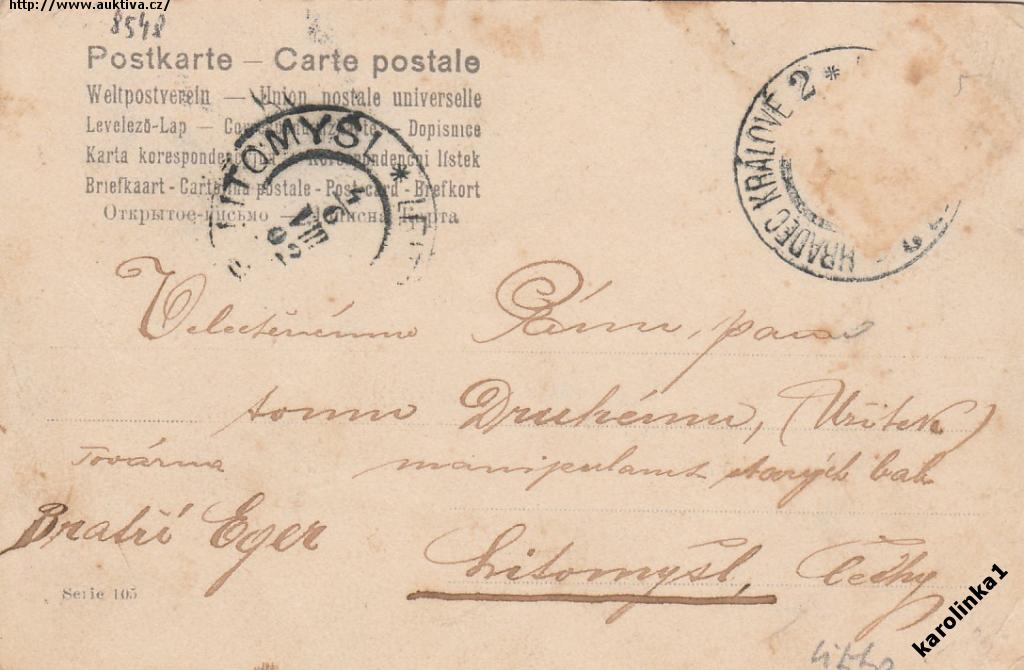 http://www.auktiva.cz/
8548
Postkarte – Carte postale
Weltpostverein — Union postale universelle
Levelező-Lap — – Dopisnice
Karta korespondencyjna — Korespondenční lístek
Briefkaart - Cartolina postale - Post card - Brefkort
Открытое письмо —
LITOMYŠL *
HRADEC KRÁLOVÉ 2 *
Velectěnému Pánu, panu
tomu Druhému, (Učitek)
Továrna manipulant starých bab
Bratří Eger
Litomyšl, Čechy
Serie 105
karolinka1